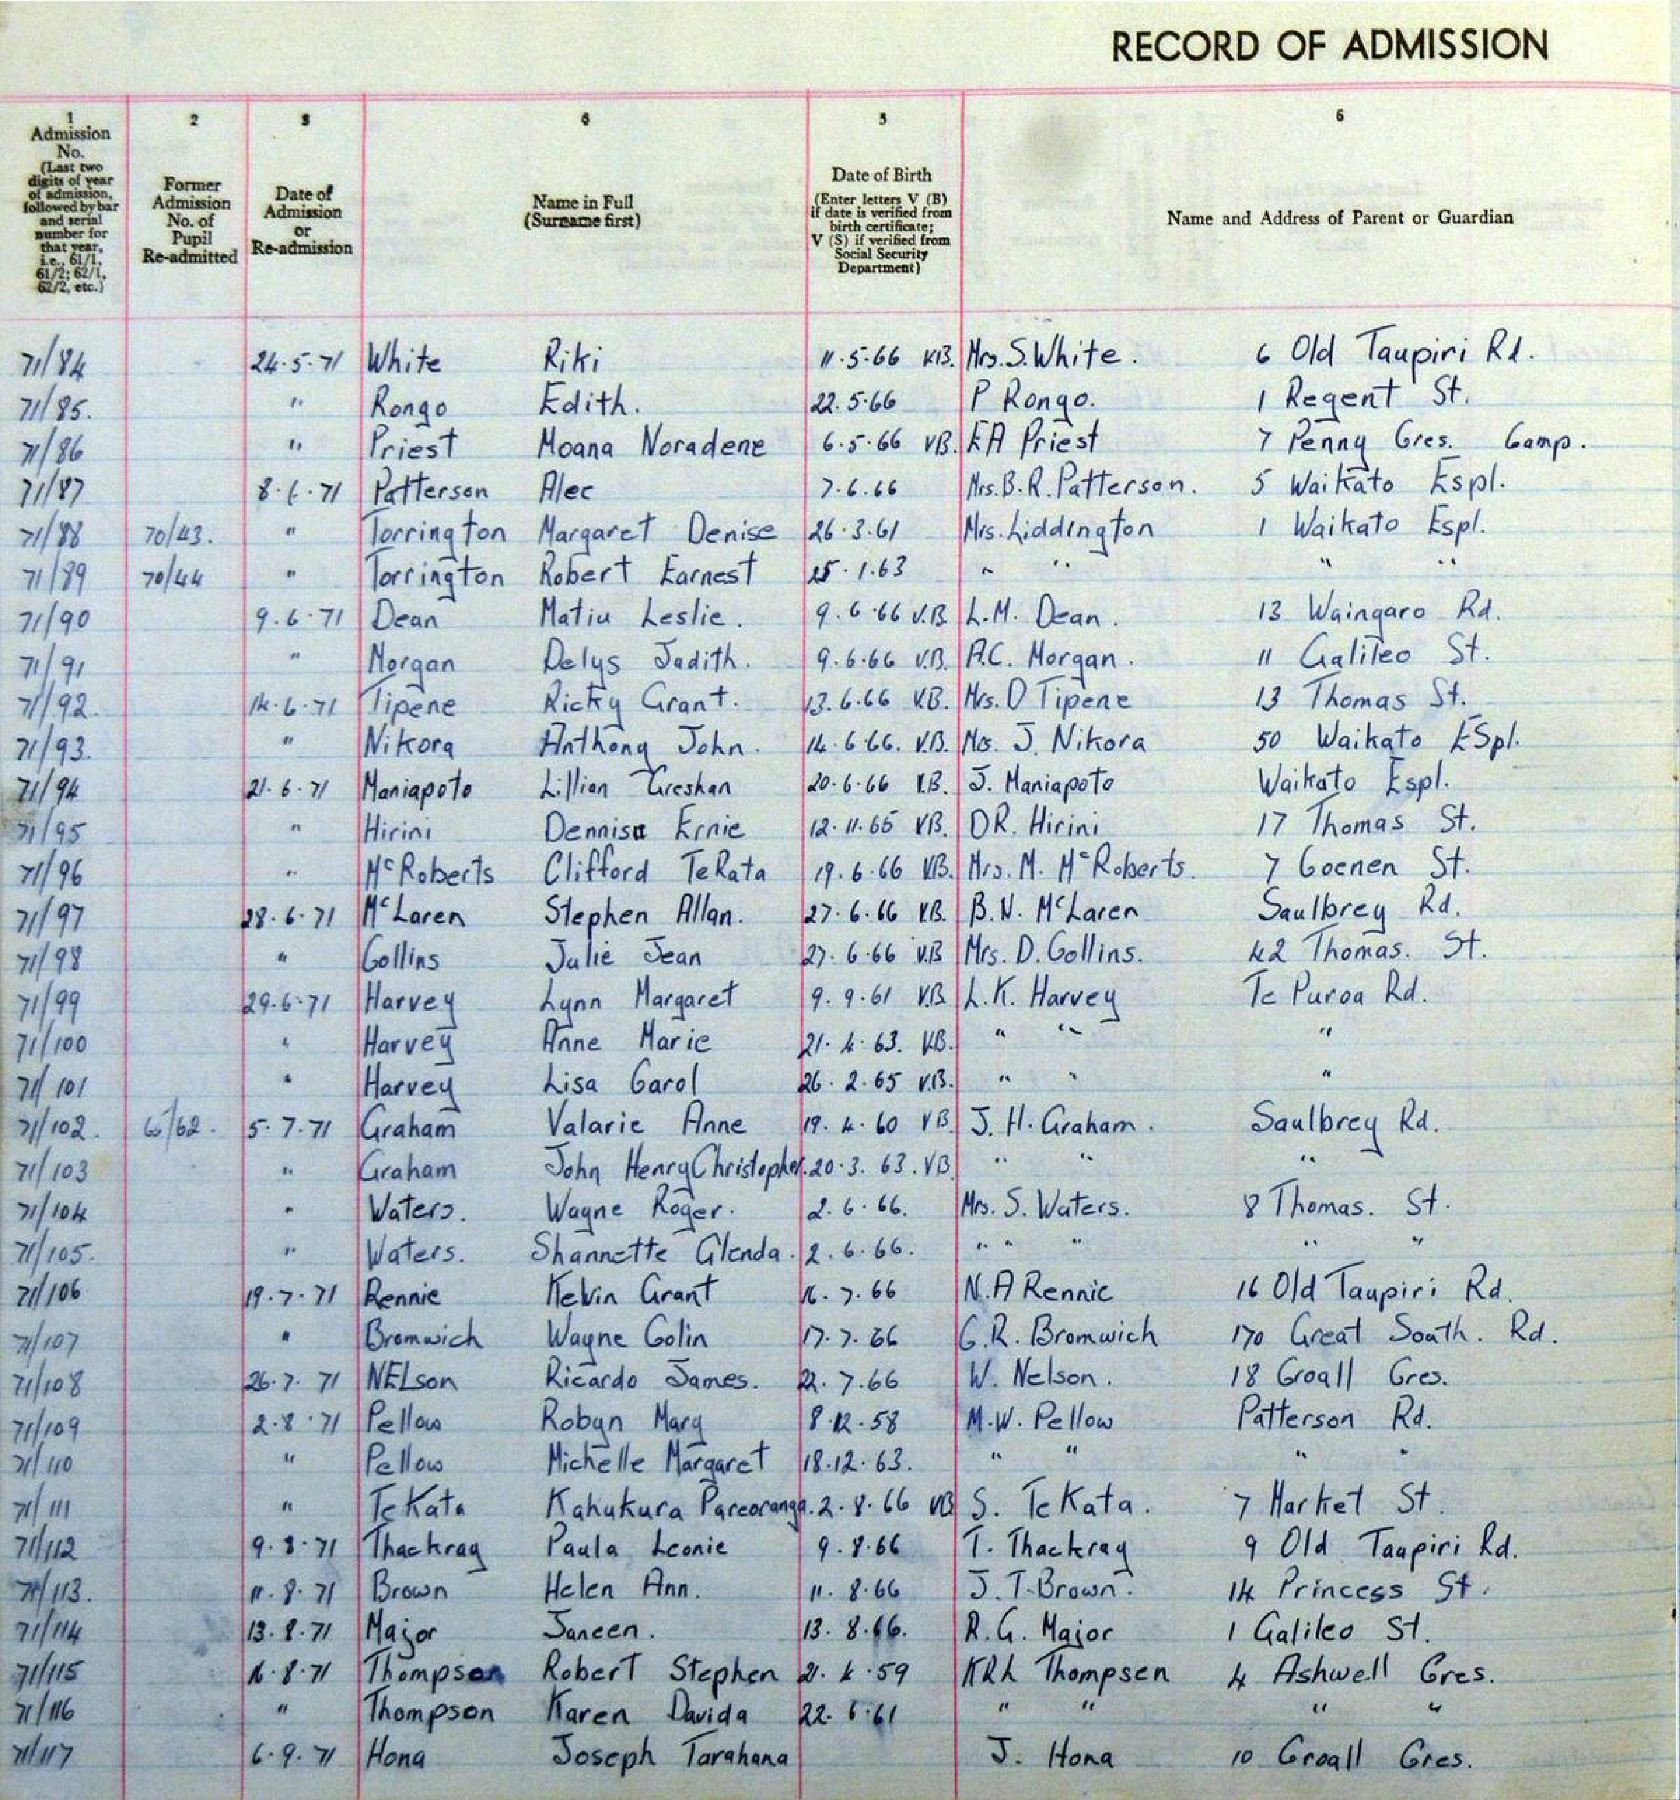 RECORD OF ADMISSION
1 2 3 4 5 6
Admission No. (Last two digits of year of admission, followed by bar and serial number for that year, i.e., 61/1, 61/2; 62/1, 62/2, etc.) Former Admission No. of Pupil Re-admitted Date of Admission or Re-admission Name in Full (Surname first) Date of Birth (Enter letters V (B) if date is verified from birth certificate; V (S) if verified from Social Security Department) Name and Address of Parent or Guardian
71/84 24.5.71 White Riki 11.5.66 V.B. Mrs. S. White. 6 Old Taupiri Rd.
71/85. " Rongo Edith. 22.5.66 P Rongo. 1 Regent St.
71/86 " Priest Moana Noradene 6.5.66 VB. EA Priest 7 Penny Cres. Camp.
71/87 8.6.71 Patterson Alec 7.6.66 Mrs. B.R. Patterson. 5 Waikato Espl.
71/88 70/43. " Torrington Margaret Denise 26.3.61 Mrs. Liddington 1 Waikato Espl.
71/89 70/44 " Torrington Robert Earnest 25.1.63 " " " "
71/90 9.6.71 Dean Matiu Leslie. 9.6.66 V.B. L.M. Dean. 13 Waingaro Rd.
71/91 " Morgan Delys Judith. 9.6.66 V.B. A.C. Morgan. 11 Galileo St.
71/92. 14.6.71 Tipene Ricky Grant. 13.6.66 V.B. Mrs. D Tipene 13 Thomas St.
71/93. " Nikora Anthony John. 14.6.66. V.B. Mrs. J. Nikora 50 Waikato ESpl.
71/94 21.6.71 Maniapoto Lillian Greshan 20.6.66 V.B. J. Maniapoto Waikato Espl.
71/95 " Hirini Dennisa Ernie 12.11.65 VB. DR. Hirini 17 Thomas St.
71/96 " McRoberts Clifford TeRata 19.6.66 V.B. Mrs. M. McRoberts. 7 Coenen St.
71/97 28.6.71 McLaren Stephen Allan. 27.6.66 V.B. B.N. McLaren Saulbrey Rd.
71/98 " Collins Julie Jean 27.6.66 V.B Mrs. D. Collins. 42 Thomas. St.
71/99 29.6.71 Harvey Lynn Margaret 9.9.61 V.B. L.K. Harvey Te Puroa Rd.
71/100 " Harvey Anne Marie 21.4.63. V.B. " " "
71/101 " Harvey Lisa Carol 26.2.65 V.B. " " "
71/102. 5.7.71 Graham Valarie Anne 19.4.60 VB J.H. Graham. Saulbrey Rd.
71/103 " Graham John Henry Christopher. 20.3.63. VB " " "
71/104 " Waters. Wayne Roger. 2.6.66. Mrs. S. Waters. 8 Thomas. St.
71/105. " Waters. Shannette Glenda. 2.6.66. " " " " "
71/106 19.7.71 Rennie Kelvin Grant 16.7.66 N.A Rennie 16 Old Taupiri Rd.
71/107 " Bromwich Wayne Colin 17.7.66 G.R. Bromwich 170 Great South. Rd.
71/108 26.7.71 NELson Ricardo James. 22.7.66 W. Nelson. 18 Croall Cres.
71/109 2.8.71 Pellow Robyn Mary 8.12.58 M.W. Pellow Patterson Rd.
71/110 " Pellow Michelle Margaret 18.12.63. " " " "
71/111 " TeKata Kahukura Pareoranga. 2.8.66 VB S. TeKata. 7 Market St.
71/112 9.8.71 Thackray Paula Leonie 9.8.66 T. Thackray 9 Old Taupiri Rd.
71/113. 11.8.71 Brown Helen Ann. 11.8.66 J.T. Brown. 14 Princess St.
71/114 13.8.71 Major Janeen. 13.8.66. R.G. Major 1 Galileo St.
71/115 16.8.71 Thompson Robert Stephen 21.4.59 Thompsen 4 Ashwell Cres.
71/116 " Thompson Karen Davida 22.6.61 " " " "
71/117 6.9.71 Hona Joseph Tarahana J. Hona 10 Croall Cres.